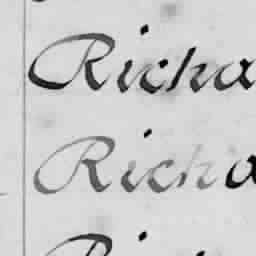 Richa
Richa